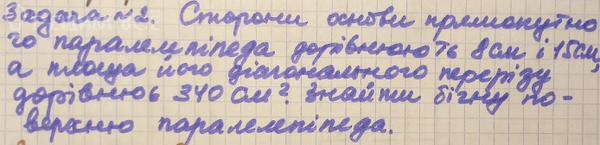 Задача №2. Сторони основи прямокутно
го паралелепіпеда дорівнюють 8см і 15см,
а площа його діагонального перерізу
дорівнює 340 см². Знайти бічну по-
верхню паралелепіпеда.